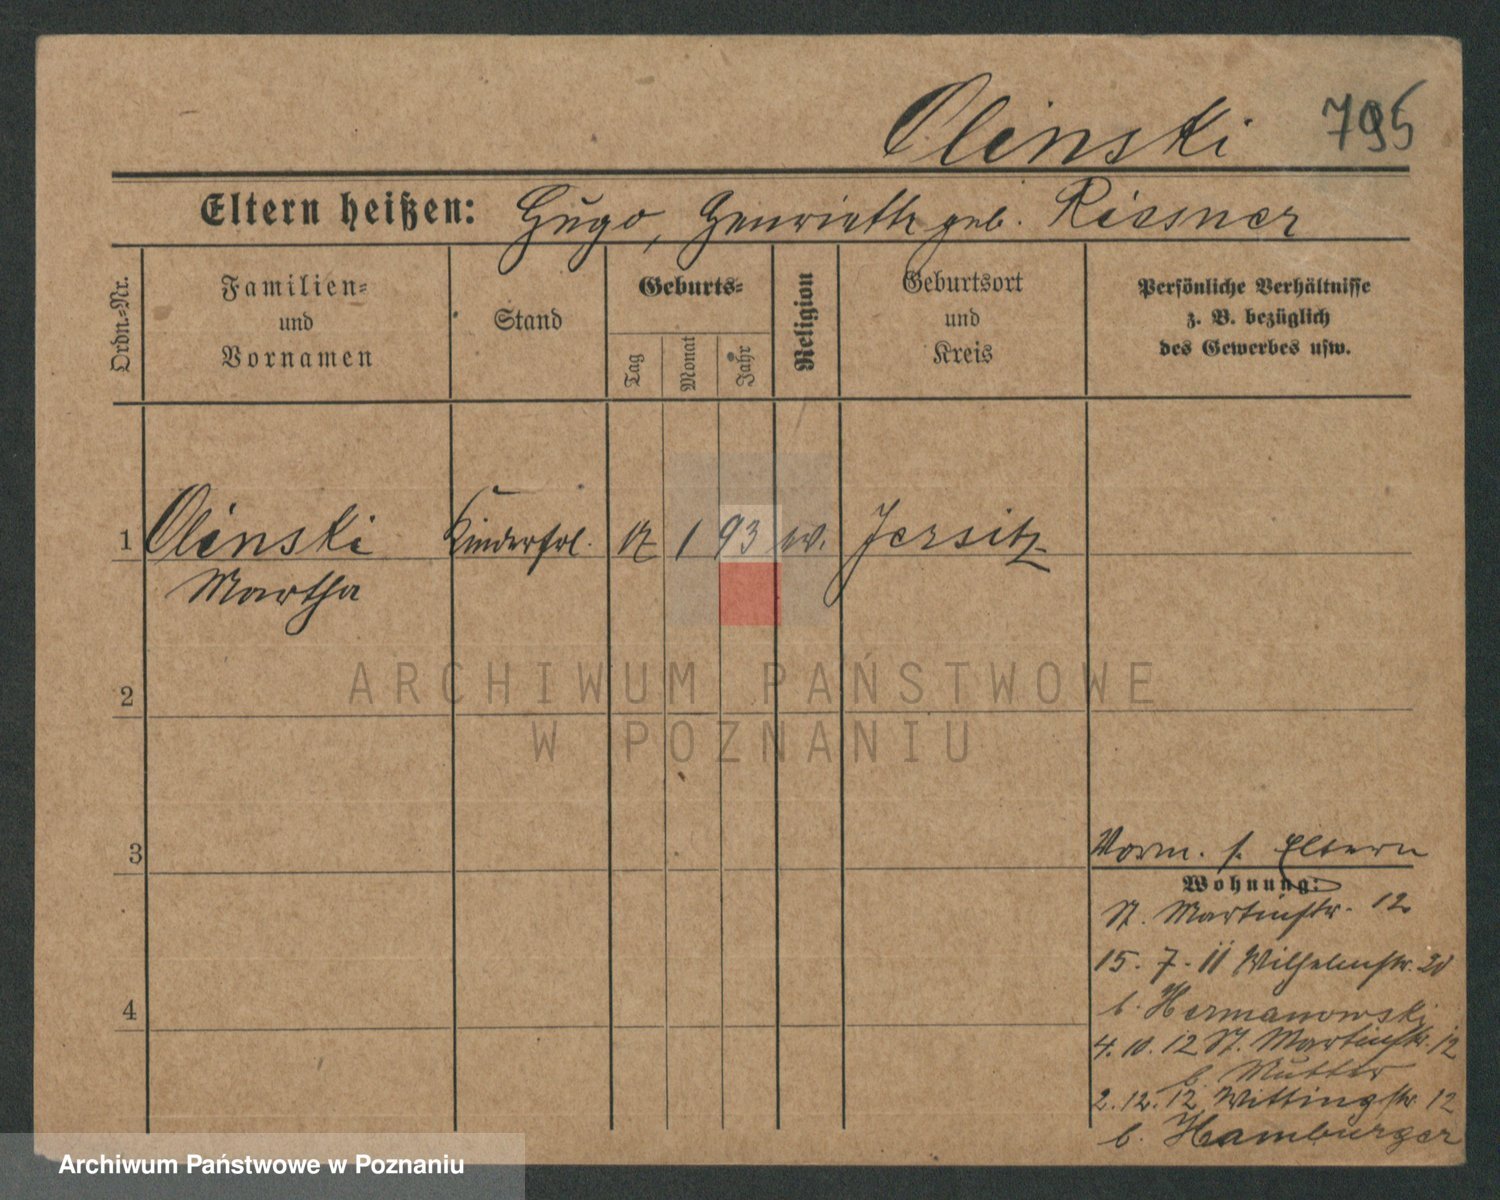 Olinski 795
Eltern heißen: Hugo, Henriette geb. Riesner
Ordn.-Nr.
Familien-
und
Vornamen
Stand
Geburts-
Tag
Monat
Jahr
Religion
Geburtsort
und
Kreis
Persönliche Verhältnisse
z. B. bezüglich
des Gewerbes usw.
1 Olinski Kinderfrl. 17 1 93 ev. Jersitz
Martha
2
ARCHIWUM PAŃSTWOWE
W POZNANIU
3
Vorm. s. Eltern
Wohnung:
St. Martinstr. 12
15. 7. 11 Wilhelmstr. 20
b. Hermanowski
4
4. 10. 12 St. Martinstr. 12
b. Mutter
2. 12. 12 Wittingstr. 12
b. Hamburger
Archiwum Państwowe w Poznaniu